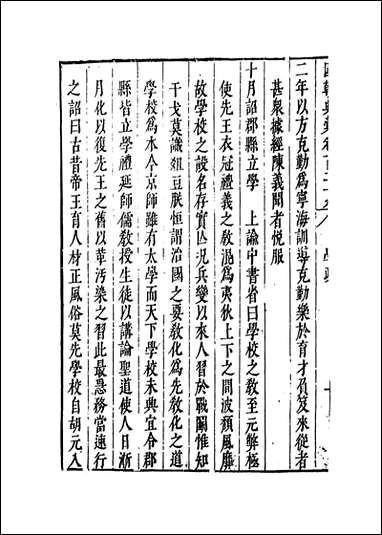 國朝典彙卷百二十九
學政
二年以方克勤為寧海訓導克勤樂於育才負笈來從者
甚衆據經陳義聞者悅服
十月詔郡縣立學　上諭中書省曰學校之教至元弊極
使先王衣冠禮義之教混為夷狄上下之間波頹風靡
故學校之設名存實亡况兵變以來人習於戰鬬惟知
干戈莫識俎豆朕恒謂治國之要教化為先教化之道
學校為本今京師雖有太學而天下學校未興宜令郡
縣皆立學禮延師儒教授生徒以講論聖道使人日漸
月化以復先王之舊以革汚染之習此最急務當速行
之詔曰古昔帝王育人材正風俗莫先學校自胡元入